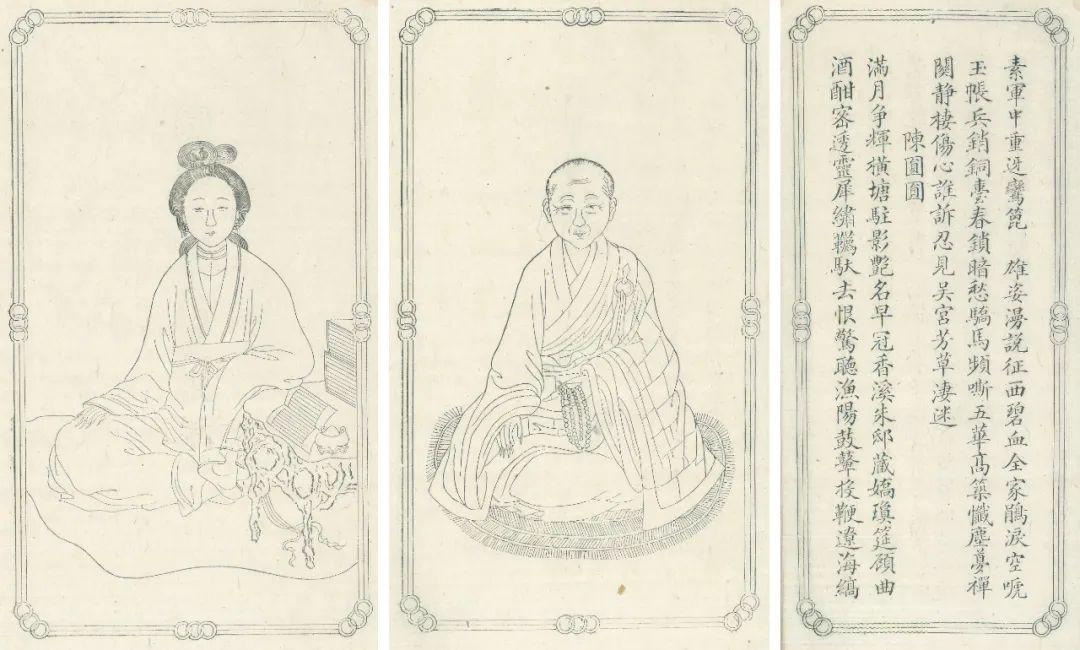 素軍中重迓鸞篦　雄姿漫說征西碧血全家鵑淚空嗁
玉帳兵銷銅臺春鎖暗愁驕馬頻嘶五華高築懺塵夢禪
關靜棲傷心誰訴忍見吴宮芳草淒迷
陳圓圓
滿月爭輝橫塘駐影艷名早冠香溪朱邸藏嬌瓊筵顧曲
酒酣密透靈犀繡韉馱去恨驚聽漁陽鼓鼙投鞭遼海縞